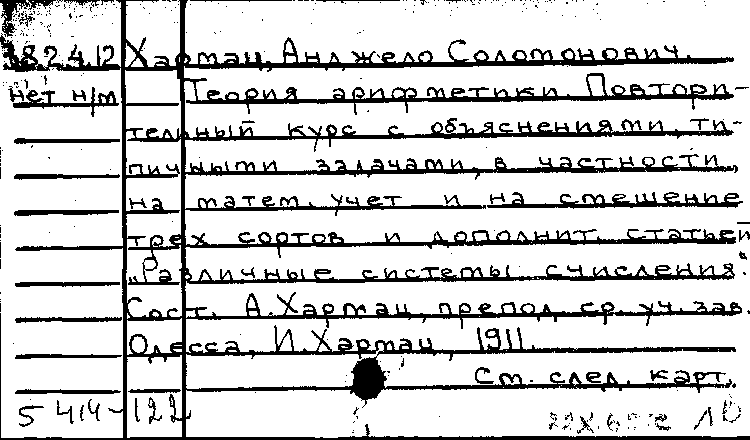 3824.12 Хармац, Анджело Соломонович.
нет н/м Теория арифметики. Повтори-
тельный курс с объяснениями, ти-
пичными задачами, в частности
на матем. учет и на смешение
трех сортов и дополнит. статьей
„Различные системы счисления".
Сост. А. Хармац, препод. ср. уч. зав.
Одесса, И. Хармац, 1911.
См. след. карт.
5 414-122